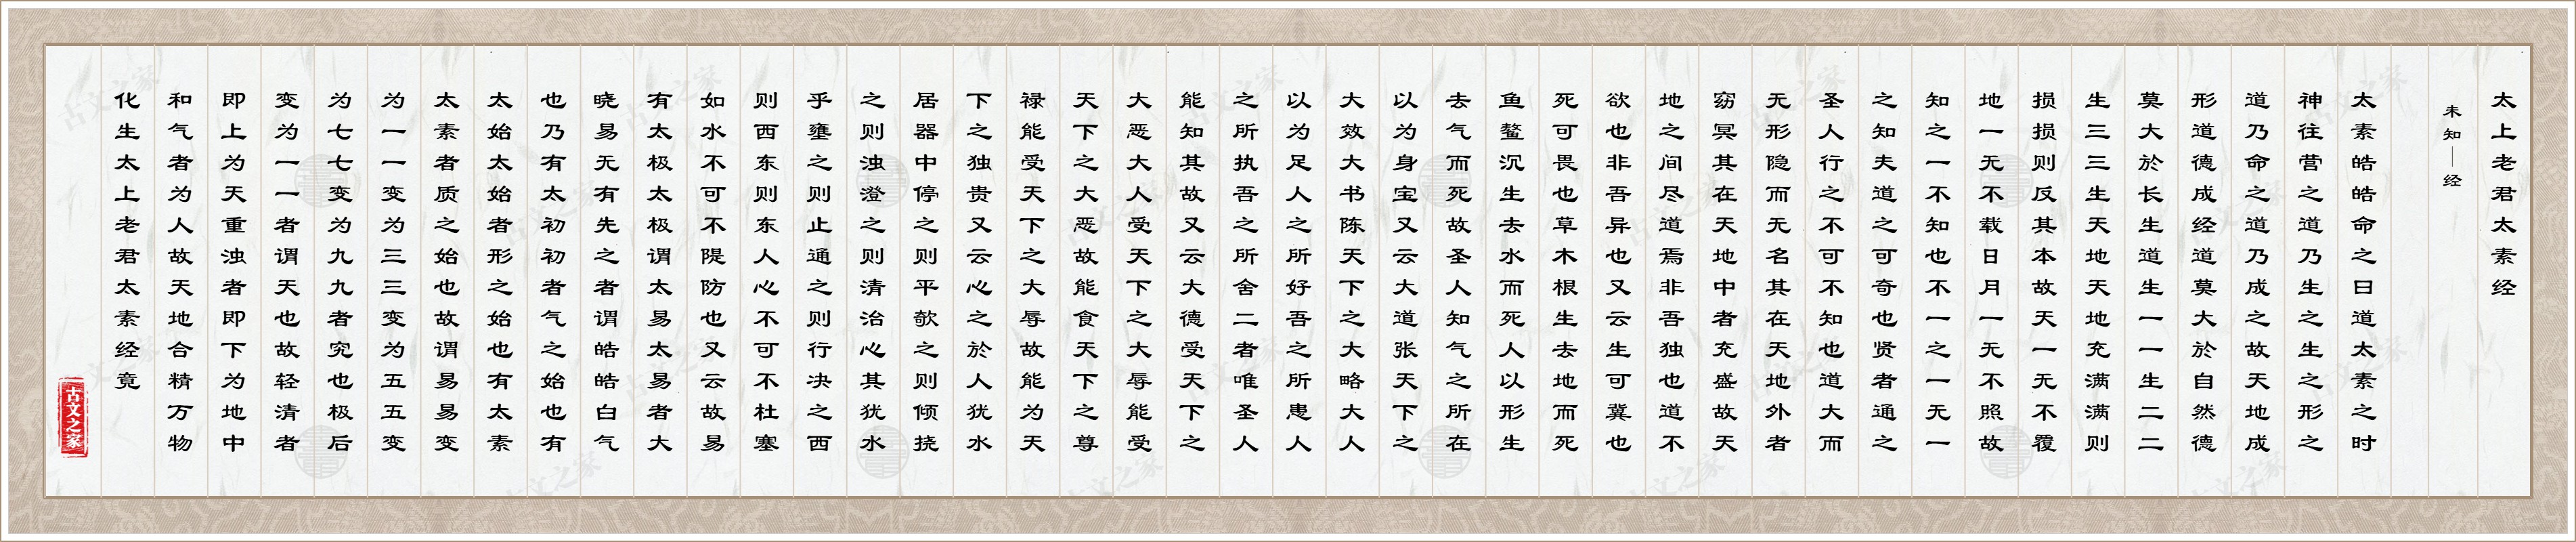 太上老君太素经
未知—经
太素皓皓命之曰道太素之时
神往营之道乃生之生之形之
道乃命之道乃成之故天地成
形道德成经道莫大於自然德
莫大於长生道生一一生二二
生三三生天地天地充满满则
损损则反其本故天一无不覆
地一无不载日月一无不照故
知之一不知也不一之一无一
之知夫道之可奇也贤者通之
圣人行之不可不知也道大而
无形隐而无名其在天地外者
窈冥其在天地中者充盛故天
地之间尽道焉非吾独也道不
欲也非吾异也又云生可冀也
死可畏也草木根生去地而死
鱼鳖沉生去水而死人以形生
去气而死故圣人知气之所在
以为身宝又云大道张天下之
大效大书陈天下之大略大人
以为足人之所好吾之所恚人
之所执吾之所舍二者唯圣人
能知其故又云大德受天下之
大恶大人受天下之大辱能受
天下之大恶故能食天下之尊
禄能受天下之大辱故能为天
下之独贵又云心之於人犹水
居器中停之则平欹之则倾挠
之则浊澄之则清治心其犹水
乎壅之则止通之则行决之西
则西东则东人心不可不杜塞
如水不可不隄防也又云故易
有太极太极谓太易太易者大
晓易无有先之者谓皓皓白气
也乃有太初初者气之始也有
太始太始者形之始也有太素
太素者质之始也故谓易易变
为一一变为三三变为五五变
为七七变为九九者究也极后
变为一一者谓天也故轻清者
即上为天重浊者即下为地中
和气者为人故天地合精万物
化生太上老君太素经竟
古文之家